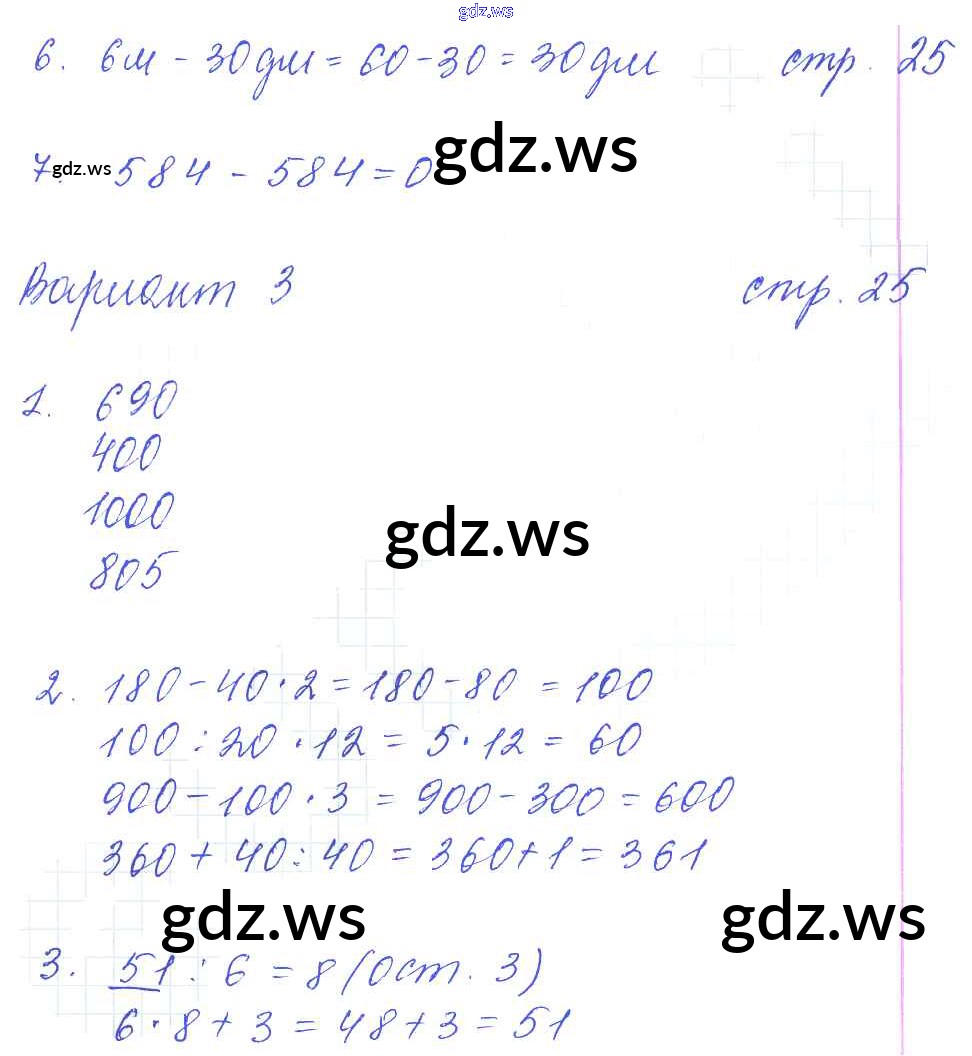 gdz.ws
6. 6м - 30дм = 60 - 30 = 30дм стр. 25
gdz.ws
7. 584 - 584 = 0
gdz.ws
Вариант 3 стр. 25
1. 690
400
1000
805
gdz.ws
2. 180 - 40 · 2 = 180 - 80 = 100
100 : 20 · 12 = 5 · 12 = 60
900 - 100 · 3 = 900 - 300 = 600
360 + 40 : 40 = 360 + 1 = 361
gdz.ws gdz.ws
3. 51 : 6 = 8 (ост. 3)
6 · 8 + 3 = 48 + 3 = 51